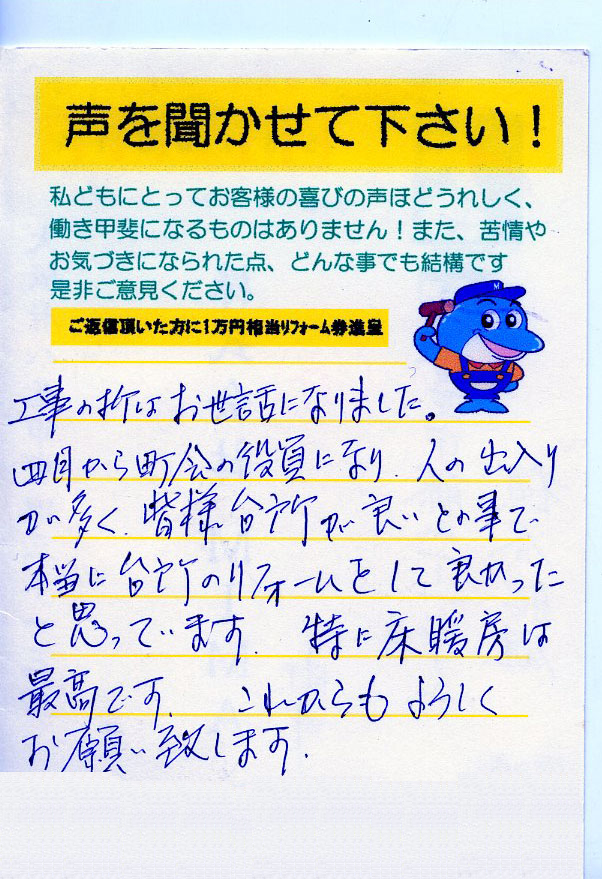 声を聞かせて下さい！
私どもにとってお客様の喜びの声ほどうれしく、
働き甲斐になるものはありません！また、苦情や
お気づきになられた点、どんな事でも結構です
是非ご意見ください。
ご返信頂いた方に1万円相当リフォーム券進呈
M
工事の折はお世話になりました。
四月から町会の役員になり、人の出入り
が多く、皆様台所が良いとの事で
本当に台所のリフォームをして良かった
と思っています。特に床暖房は
最高です。これからもよろしく
お願い致します.